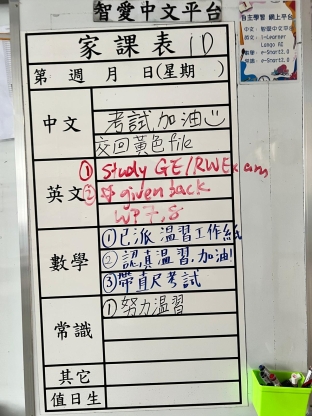 智愛中文平台
家課表 1D
第 週 月 日(星期 )
中文
考試加油
交回黃色file
英文
① Study GE/RWExam
② given back
WP7,8
數學
①已派溫習工作紙
②認真溫習,加油!
③帶直尺考試
常識
①努力溫習
其它
值日生
自主學習 網上平台
中文: 智愛中文平台
英文: i-Learner